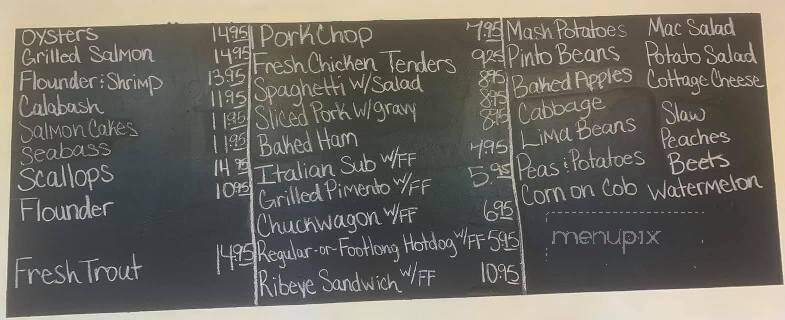 Oysters 14.95
Grilled Salmon 14.95
Flounder & Shrimp 13.95
Calabash 11.95
Salmon Cakes 11.95
Seabass 11.95
Scallops 14.95
Flounder 10.95
Fresh Trout 14.95
Pork Chop 7.95
Fresh Chicken Tenders 9.25
Spaghetti w/Salad 8.95
Sliced Pork w/gravy 8.95
Baked Ham 8.95
Italian Sub w/FF 7.95
Grilled Pimento w/FF 5.95
Chuckwagon w/FF 6.95
Regular-or-Footlong Hotdog w/FF 5.95
Ribeye Sandwich w/FF 10.95
Mash Potatoes Mac Salad
Pinto Beans Potato Salad
Baked Apples Cottage Cheese
Cabbage Slaw
Lima Beans Peaches
Peas & Potatoes Beets
Corn on Cob Watermelon
menupix